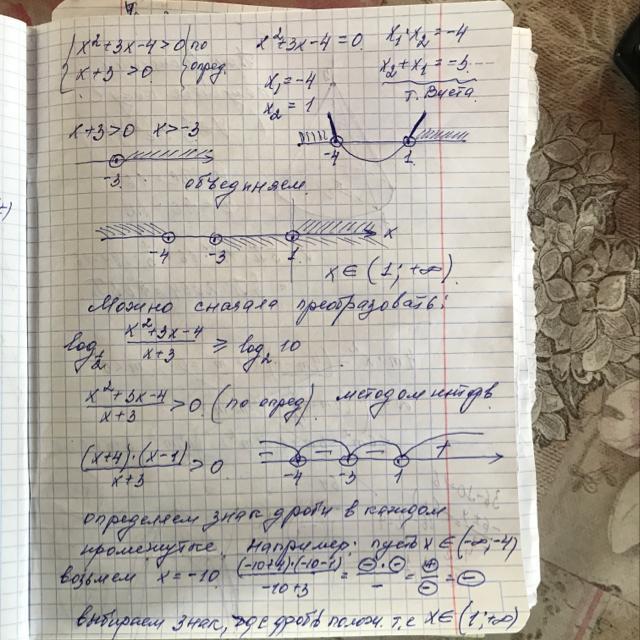 x²+3x-4>0 по x²+3x-4=0 x₁·x₂=-4
x+3>0 опред. x₁=-4 x₂+x₁=-3
x₂=1 т. Виета
x+3>0 x>-3
-4 1
-3
объединяем
-4 -3 1 x
x∈(1;+∞)
Можно сначала преобразовать:
log₂ (x²+3x-4)/(x+3) ≥ log₂ 10
(x²+3x-4)/(x+3) >0 (по опред) методом интов
((x+4)·(x-1))/(x+3) >0 - - - +
-4 -3 1
определяем знак дроби в каждом
промежутке. Например: пусть x∈(-∞;-4)
возьмем x=-10 ((-10+4)·(-10-1))/(-10+3) = (⊖·⊖)/- = ⊕/⊖ = ⊖
выбираем знак, где дробь полож. т.е x∈(1;+∞)